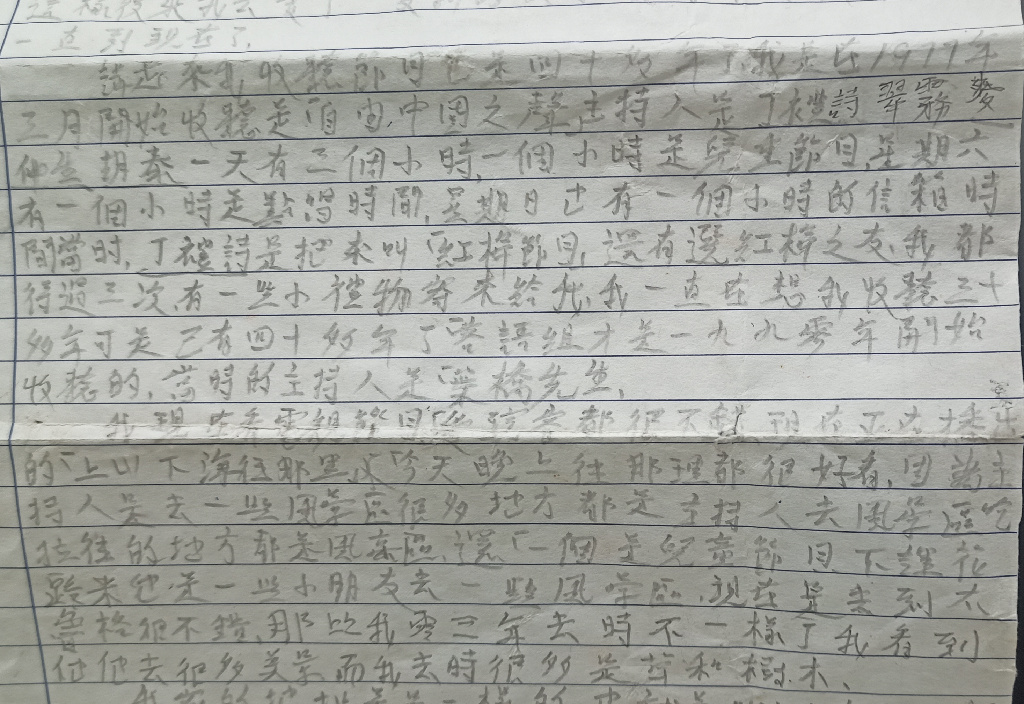 一直到現在了.
說起來我收聽節目也是四十多年了,我是在1977年
三月開始收聽是「自由中國之聲」主持人是丁禮詩 翠霧 麥
仲生 胡泰一天有三個小時,一個小時是 節目,星期六
有一個小時是點唱時間,星期日也有一個小時的信箱時
間當時,丁禮詩是把來叫「紅棒節目,還有選紅棒之友,我都
得過三次,有一些小禮物寄來給我,我一直在想我收聽三十
多年可是已有四十多年了粵語組才是一九九零年開始
收聽的,當時的主持人是「葉橋先生,
我現在看電視節目 都很不錯現在正在播出
的「上山下海往那里」「今天晚上往那裡都很好看,因為主
持人是去一些風景區很多地方都是主持人去風景區吃
住往的地方都是風景區,還「一個是兒童節目 下課花
路米也是一些小朋友去一些風景區,現在是去到太
魯格很不錯,那些我零三年去時不一樣了我看到
他他去很多美景而我去時很多是草和樹木、